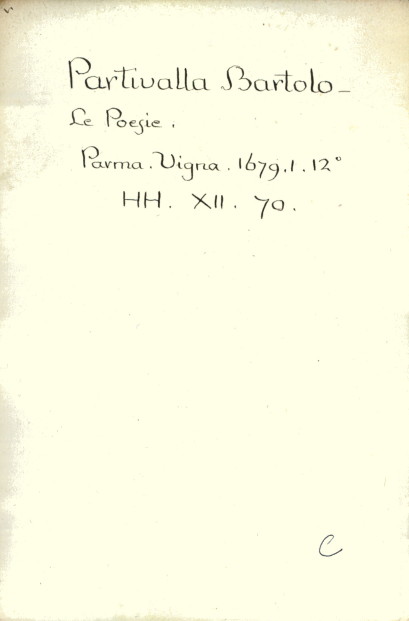 Partivalla Bartolo -
Le Poesie.
Parma. Vigna. 1679. 1. 12°
HH. XII. 70.
C